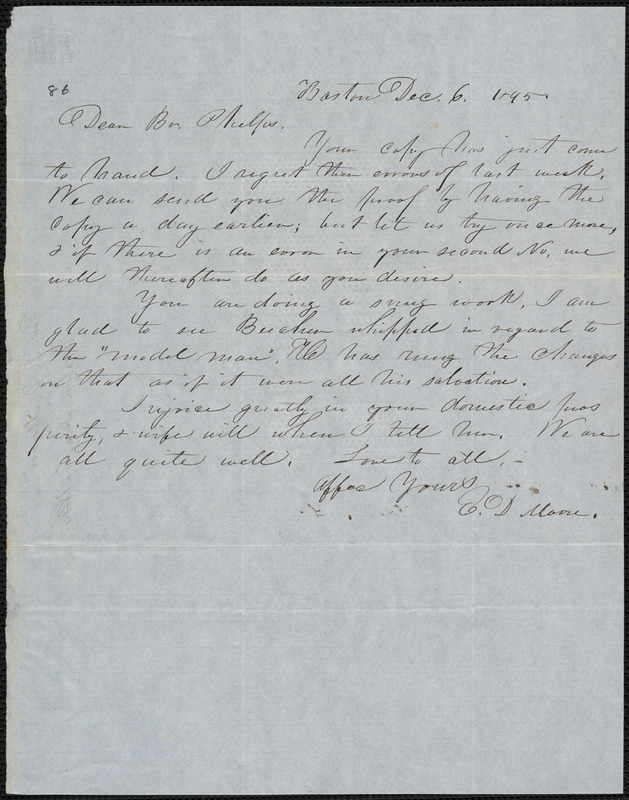 86
Boston Dec. 6. 1845
Dear Br. Phelps.
Your copy has just come
to hand. I regret the errors of last week.
We can send you the proof by having the
copy a day earlier; but let us try once more,
& if there is an error in your second No. we
will thereafter do as you desire.
You are doing a snug work. I am
glad to see Beecher whipped in regard to
the "model man". He has rung the changes
on that as if it were all his salvation.
I rejoice greatly in your domestic pros
perity, & wife will when I tell her. We are
all quite well. Love to all. -
Affec Yours
E. D Moore.